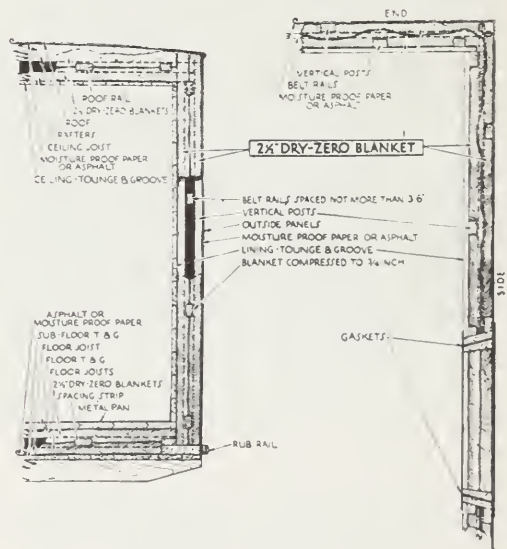 END
VERTICAL POSTS
BELT RAILS
MOISTURE PROOF PAPER
OR ASPHALT
ROOF RAIL
2½ DRY-ZERO BLANKETS
ROOF
RAFTERS
CEILING JOIST
MOISTURE PROOF PAPER
OR ASPHALT
CEILING-TOUNGE & GROOVE
2½" DRY-ZERO BLANKET
BELT RAILS SPACED NOT MORE THAN 3'6"
VERTICAL POSTS
OUTSIDE PANELS
MOISTURE PROOF PAPER OR ASPHALT
LINING-TOUNGE & GROOVE
BLANKET COMPRESSED TO ¾ INCH
SIDE
GASKETS
ASPHALT OR
MOISTURE PROOF PAPER
SUB-FLOOR T & G
FLOOR JOIST
FLOOR T & G
FLOOR JOISTS
2½" DRY-ZERO BLANKETS
SPACING STRIP
METAL PAN
RUB RAIL